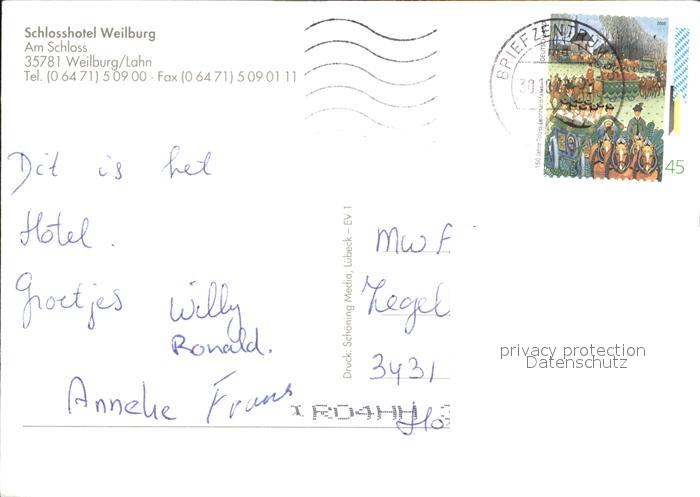 Schlosshotel Weilburg
Am Schloss
35781 Weilburg/Lahn
Tel. (0 64 71) 5 09 00 · Fax (0 64 71) 5 09 01 11
BRIEFZENTRUM
30
2005
DEUTSCHLAND
150 Jahre Tölzer Leonhardifahrt
45
Dit is het
Hotel.
Groetjes Willy
Ronald.
Anneke Frans
Druck: Schöning Media, Lübeck – EV 1
MW F
Zegel
3431
Ho
RO4HH
privacy protection
Datenschutz